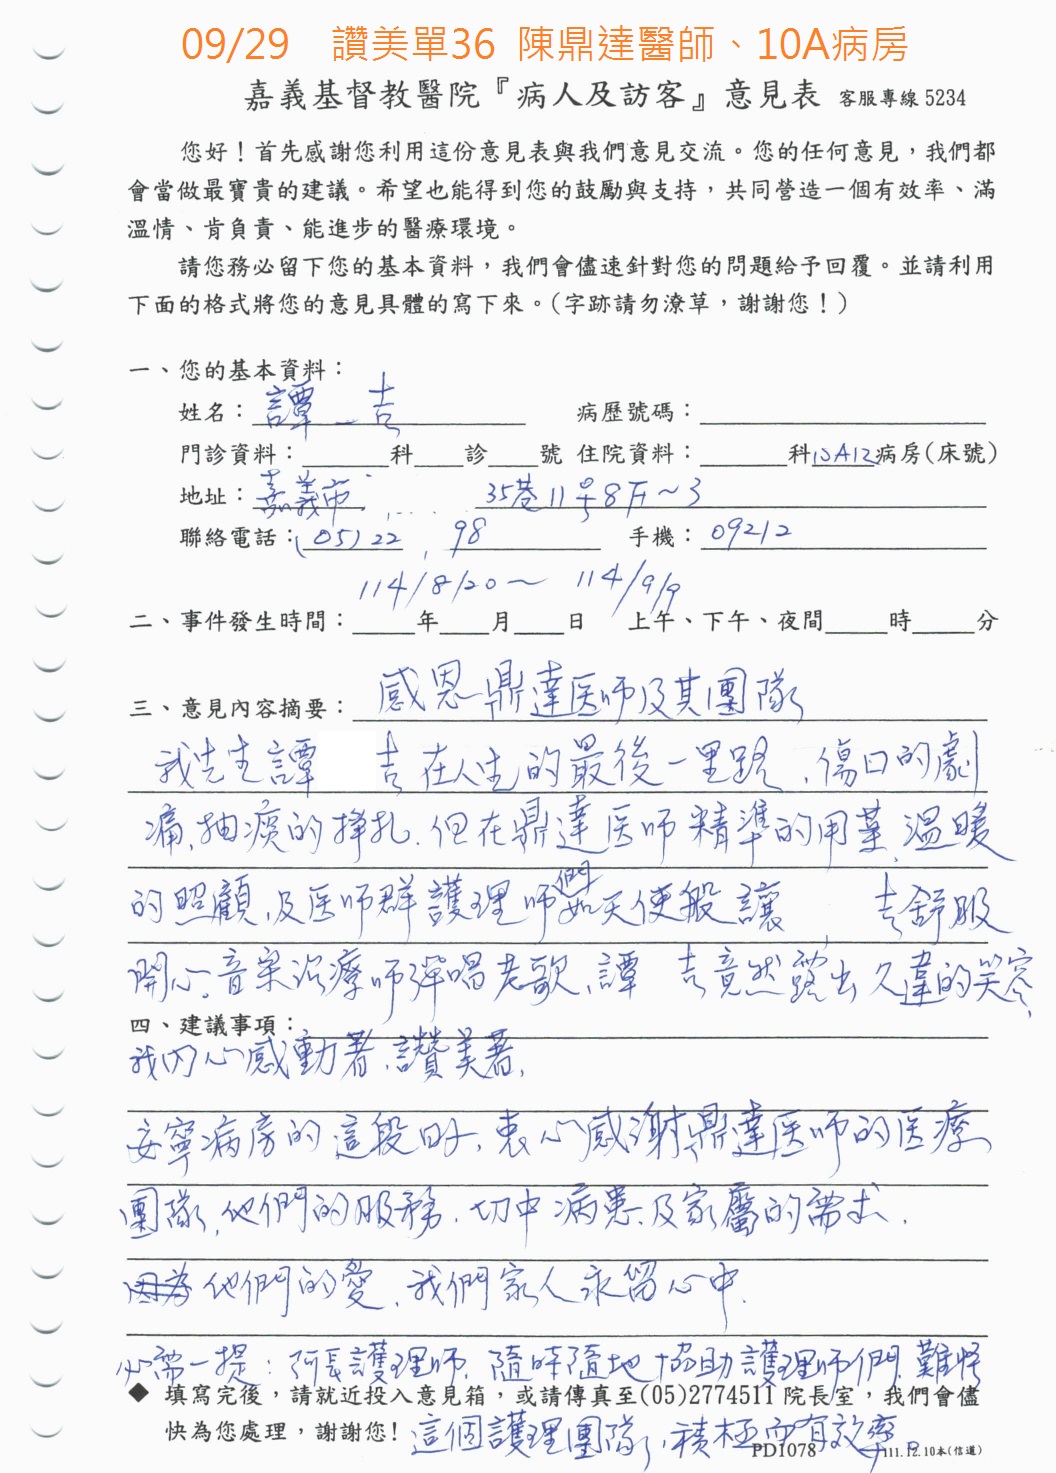 09/29 讚美單36 陳鼎達醫師、10A病房
嘉義基督教醫院『病人及訪客』意見表 客服專線 5234
您好！首先感謝您利用這份意見表與我們意見交流。您的任何意見，我們都
會當做最寶貴的建議。希望也能得到您的鼓勵與支持，共同營造一個有效率、滿
溫情、肯負責、能進步的醫療環境。
請您務必留下您的基本資料，我們會儘速針對您的問題給予回覆。並請利用
下面的格式將您的意見具體的寫下來。(字跡請勿潦草，謝謝您！)
一、您的基本資料：
姓名：譚 吉 病歷號碼：
門診資料：科 診 號 住院資料：科10A12病房(床號)
地址：嘉義市 35巷11号8F～3
聯絡電話：(05)22 98 手機：09212
114/8/20～ 114/9/9
二、事件發生時間： 年 月 日 上午、下午、夜間 時 分
三、意見內容摘要：感恩鼎達医師及其團隊
我先生譚 吉在人生的最後一里路、傷口的劇
痛、抽痰的掙扎、但在鼎達医师精準的用藥、溫暖
的照顧、及医师群護理師們如天使般讓 吉舒服
開心。音樂治療師彈唱老歌、譚 吉竟然露出久違的笑容、
四、建議事項：
我內心感動著、讚美著、
安寧病房的這段日子、衷心感謝鼎達医师的医療
團隊、他們的服務、切中病患及家屬的需求、
因為他們的愛、我們家人永留心中、
必需一提：阿長護理師、隨時隨地協助護理師們、難怪
◆ 填寫完後，請就近投入意見箱，或請傳真至(05)2774511 院長室，我們會儘
快為您處理，謝謝您！ 這個護理團隊、積極而有效率。
PD1078 111.12.10本(信道)